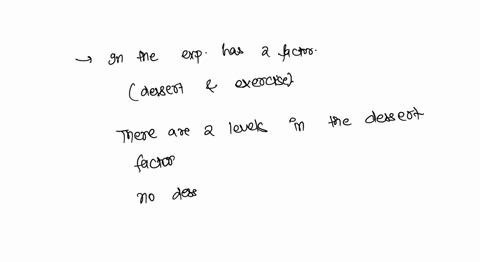 → In the exp. has 2 factor.
(dessert & exercise)
There are 2 levels in the dessert
factor
no dess